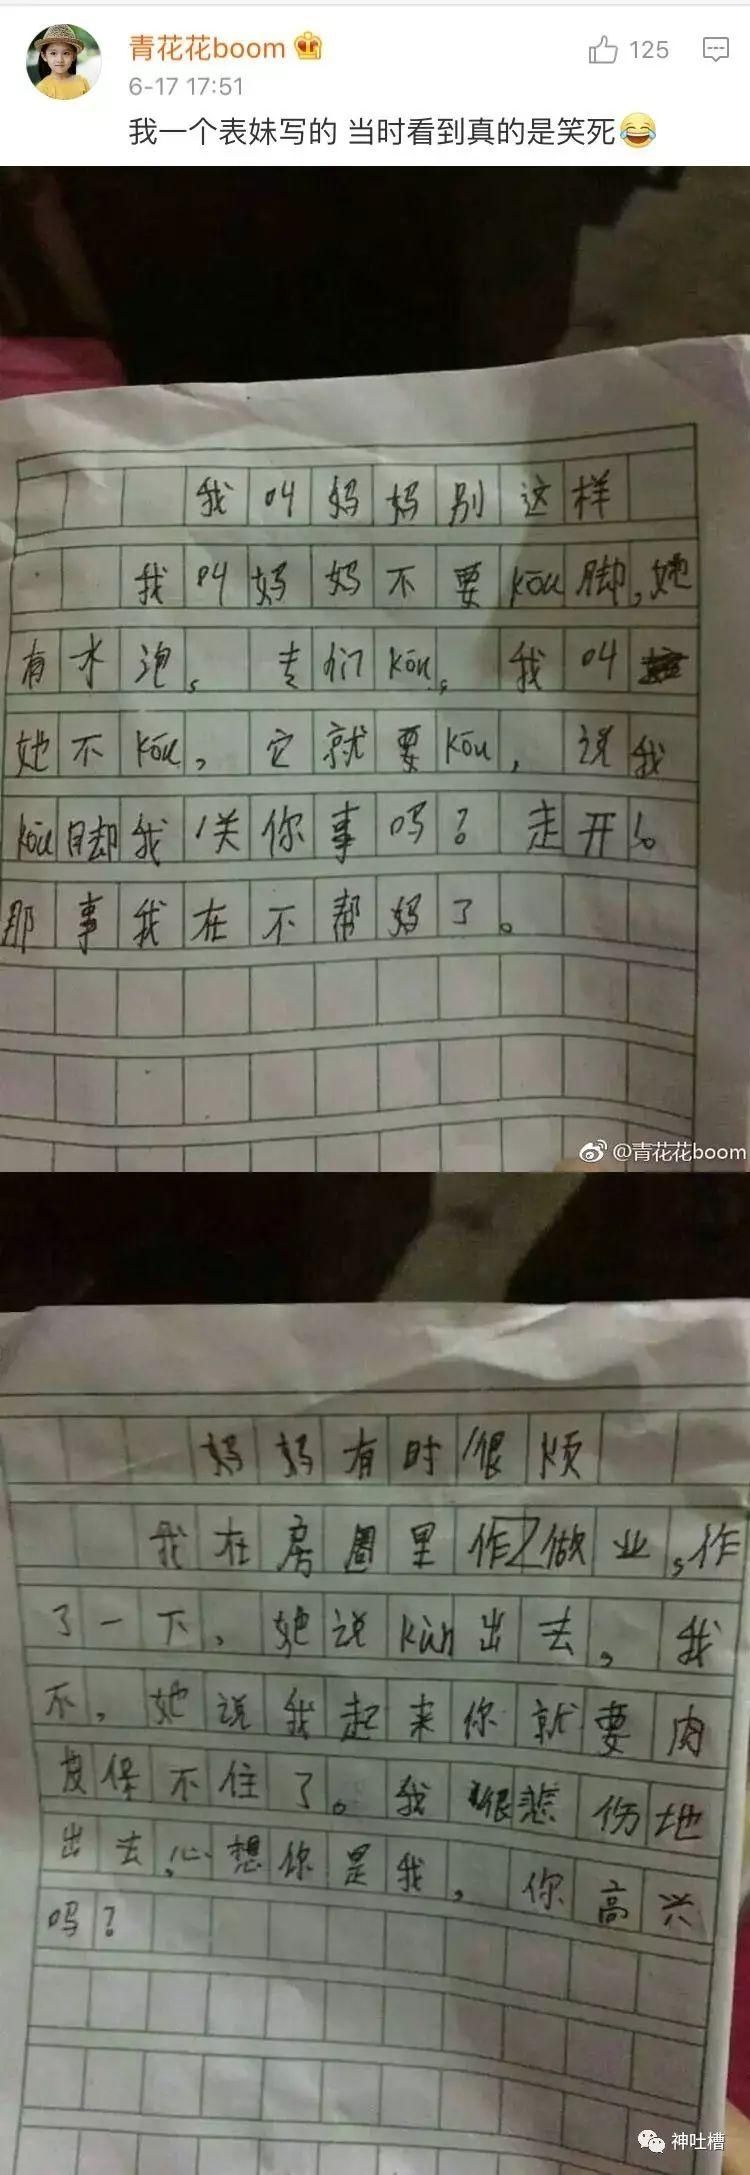 青花花boom
125
6-17 17:51
我一个表妹写的 当时看到真的是笑死
我叫妈妈别这样
我叫妈妈不要kōu脚,她
有水泡。专们kōu。我叫
她不kōu,它就要kōu,说我
kōu脚我关你事吗?走开!。
那事我在不帮妈了。
@青花花boom
妈妈有时很烦
我在房里作做业。作
了一下,她说kùn出去,我
不,她说我起来你就要肉
皮保不住了。我很悲伤地
出去,心想你是我,你高兴
吗?
神吐槽